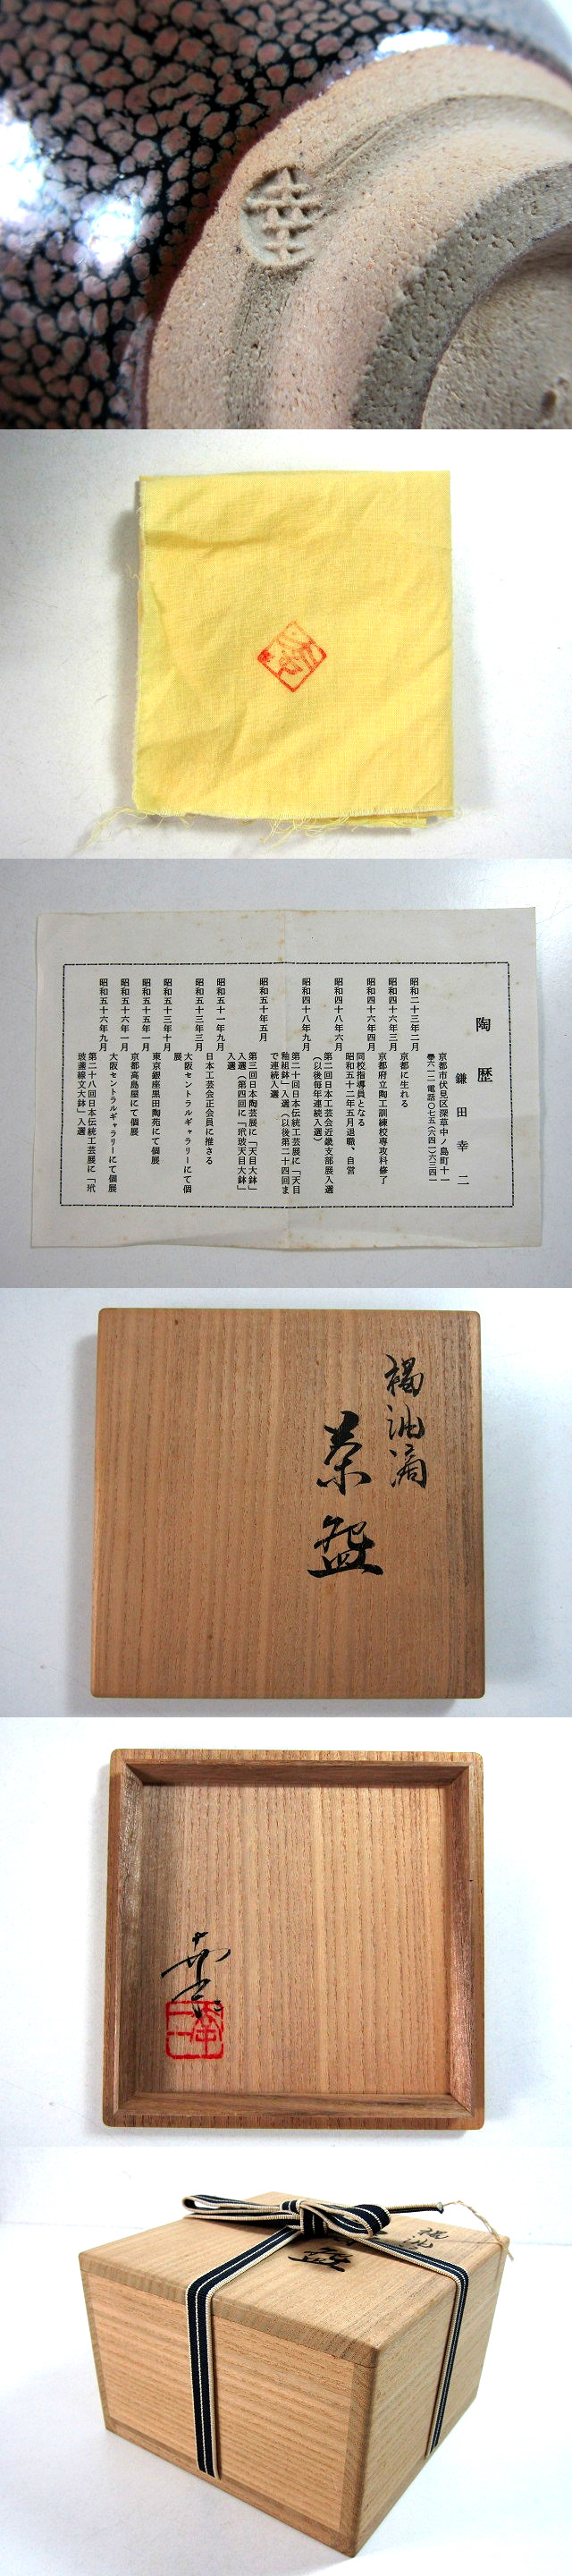 幸
陶歴
鎌田幸二
京都市伏見区深草中ノ島町十一
電話〇七五(六四一)六三四一
昭和二十三年二月 京都に生れる
昭和四十六年三月 京都府立陶工訓練校専攻科修了
昭和四十六年四月 同校指導員となる
昭和五十二年五月退職、自営
昭和四十八年六月 第二回日本工芸会近畿支部展入選
(以後毎年連続入選)
昭和四十八年九月 第二十回日本伝統工芸展に「天目
釉組鉢」入選(以後第二十四回ま
で連続入選)
昭和五十年五月 第三回日本陶芸展に「天目大鉢」
入選(第四回に「玳玻天目大鉢」
入選)
昭和五十一年九月 日本工芸会正会員に推さる
昭和五十三年三月 大阪セントラルギャラリーにて個
展
昭和五十三年十月 東京銀座黒田陶苑にて個展
昭和五十五年一月 京都高島屋にて個展
昭和五十六年一月 大阪セントラルギャラリーにて個展
昭和五十六年九月 第二十八回日本伝統工芸展に「玳
玻盞線文大鉢」入選
褐油滴
茶盌
幸二
幸二
褐油
盌